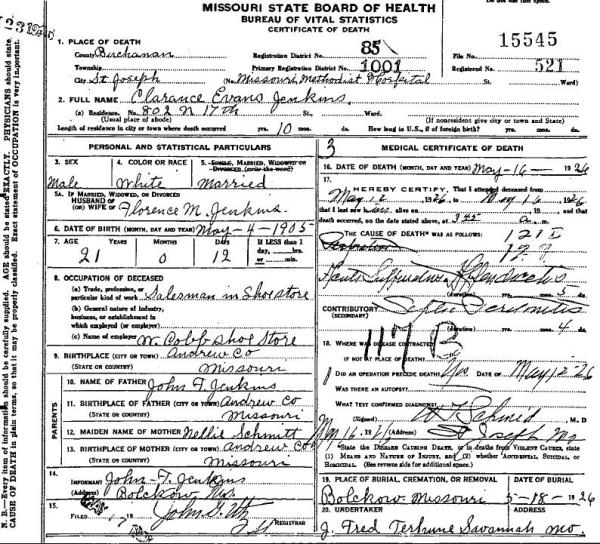 MISSOURI STATE BOARD OF HEALTH
BUREAU OF VITAL STATISTICS
CERTIFICATE OF DEATH
Do not use this space.
1. PLACE OF DEATH
County Buchanan Registration District No. 85 File No. 15545
Township Primary Registration District No. 1001 Registered No. 521
City St Joseph (No. Missouri Methodist Hospital St. Ward)
2. FULL NAME Clarance Evans Jenkins
(a) Residence. No. 802 N 17th St. Ward.
(Usual place of abode) (If nonresident give city or town and State)
Length of residence in city or town where death occurred yrs. 10 mos. ds. How long in U.S., if of foreign birth? yrs. mos. ds.
PERSONAL AND STATISTICAL PARTICULARS
3. SEX
Male
4. COLOR OR RACE
White
5. SINGLE, MARRIED, WIDOWED OR DIVORCED (write the word)
Married
5A. IF MARRIED, WIDOWED, OR DIVORCED
HUSBAND OF
(OR) WIFE OF Florence M. Jenkins
6. DATE OF BIRTH (MONTH, DAY AND YEAR) May-4-1905
7. AGE YEARS MONTHS DAYS If LESS than 1 day, hrs. or min.
21 0 12
8. OCCUPATION OF DECEASED
(a) Trade, profession, or particular kind of work Salesman in Shoe store
(b) General nature of industry, business, or establishment in which employed (or employer)
(c) Name of employer W. Cobb Shoe Store
9. BIRTHPLACE (CITY OR TOWN) Andrew Co
(STATE OR COUNTRY) Missouri
PARENTS
10. NAME OF FATHER John T. Jenkins
11. BIRTHPLACE OF FATHER (CITY OR TOWN) Andrew Co
(STATE OR COUNTRY) Missouri
12. MAIDEN NAME OF MOTHER Nellie Schmitt
13. BIRTHPLACE OF MOTHER (CITY OR TOWN) Andrew Co
(STATE OR COUNTRY) Missouri
14. INFORMANT John-T-Jenkins
(Address) Bolckow Mo.
15. FILED John G. REGISTRAR
3 MEDICAL CERTIFICATE OF DEATH
16. DATE OF DEATH (MONTH, DAY AND YEAR) May-16- 1926
17. I HEREBY CERTIFY, That I attended deceased from
May 12 1926, to May 16 1926
that I last saw him alive on 19 and that
death occurred, on the date stated above, at 3:45 a. m.
THE CAUSE OF DEATH* WAS AS FOLLOWS: 121 I
(duration) yrs. mos. 5 ds.
CONTRIBUTORY Septic Peritonitis
(SECONDARY) (duration) yrs. mos. 4 ds.
117 B
18. WHERE WAS DISEASE CONTRACTED
IF NOT AT PLACE OF DEATH?
DID AN OPERATION PRECEDE DEATH? Yes DATE OF May 12 26
WAS THERE AN AUTOPSY?
WHAT TEST CONFIRMED DIAGNOSIS?
(Signed) Schmid M. D
May 16, 19 (Address) St Joseph Mo
*State the DISEASE CAUSING DEATH, or in deaths from VIOLENT CAUSES, state
(1) MEANS AND NATURE OF INJURY, and (2) whether ACCIDENTAL, SUICIDAL, or
HOMICIDAL. (See reverse side for additional space.)
19. PLACE OF BURIAL, CREMATION, OR REMOVAL DATE OF BURIAL
Bolckow Missouri 5-18- 1926
20. UNDERTAKER ADDRESS
J. Fred Terhune Savannah Mo.
N. B.—Every item of information should be carefully supplied. AGE should be stated EXACTLY. PHYSICIANS should state
CAUSE OF DEATH in plain terms, so that it may be properly classified. Exact statement of OCCUPATION is very important.